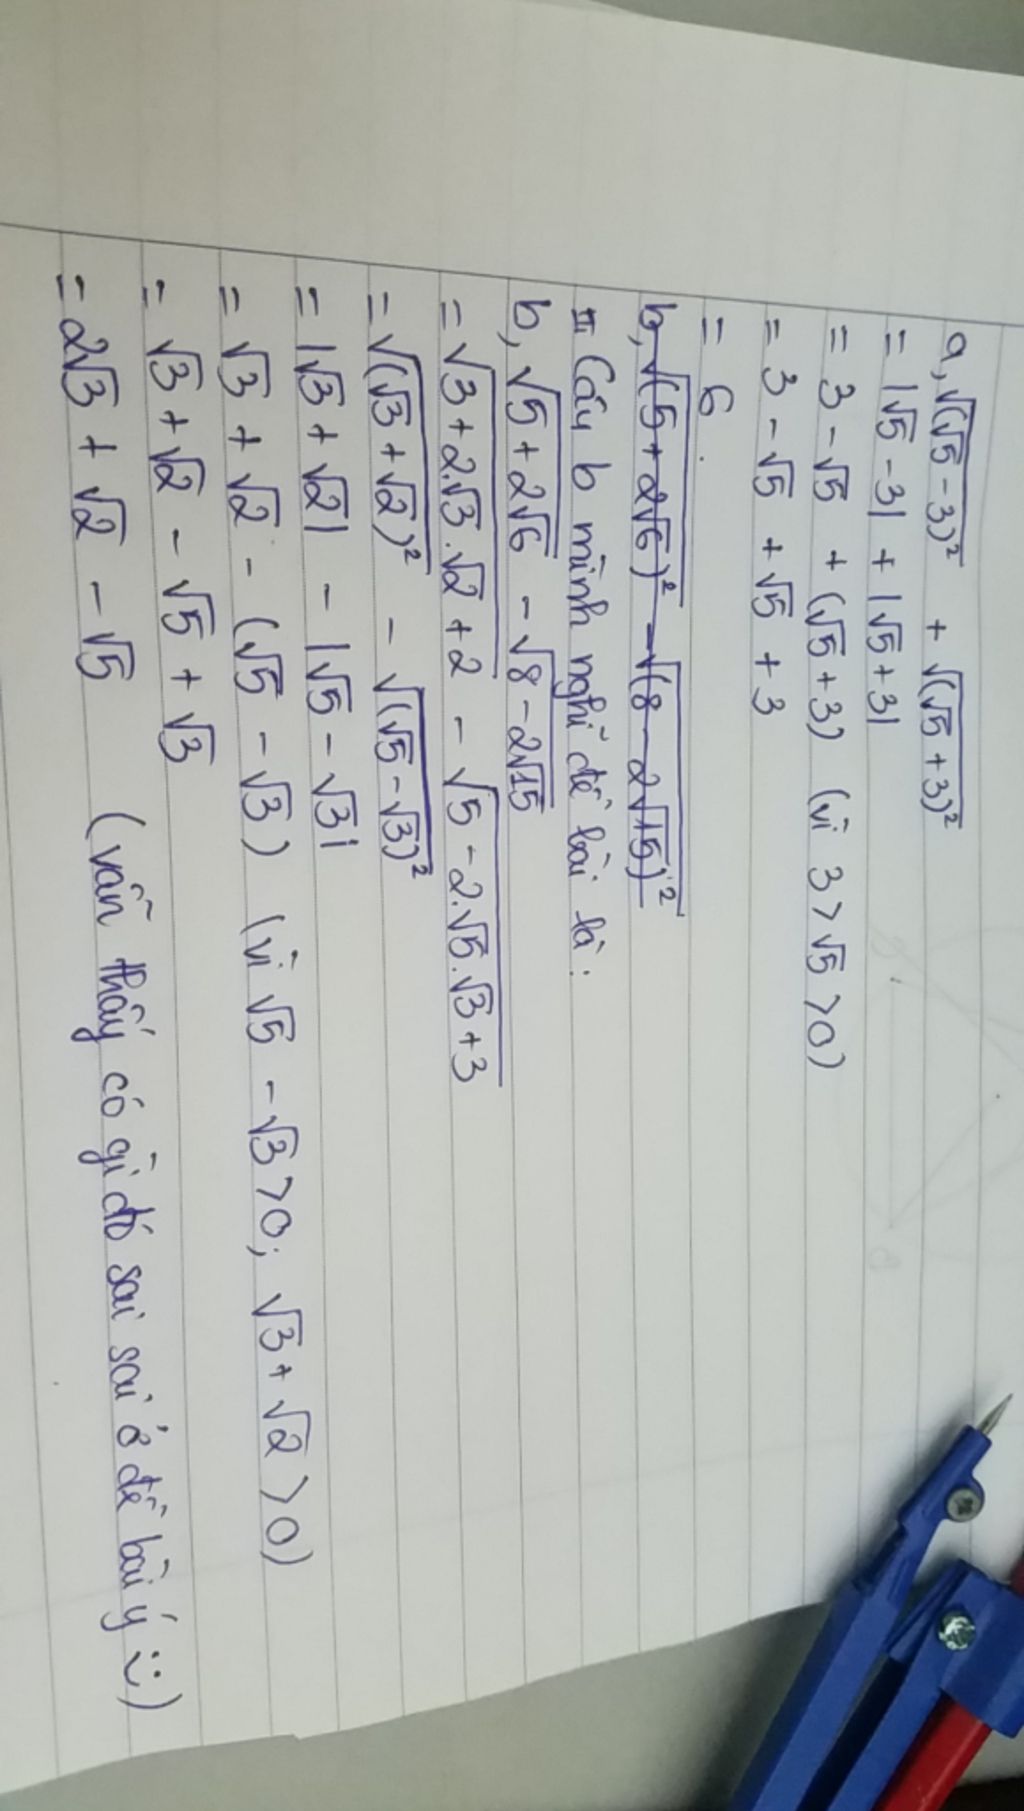 a, √(√5 - 3)² + √(√5 + 3)²
= |√5 - 3| + |√5 + 3|
= 3 - √5 + (√5 + 3) (vì 3 > √5 > 0)
= 3 - √5 + √5 + 3
= 6.
b, √(5 + 2√6)² - √(8 - 2√15)²
Câu b mình nghĩ đề bài là:
b, √5 + 2√6 - √8 - 2√15
= √3 + 2.√3.√2 + 2 - √5 - 2.√5.√3 + 3
= √(√3 + √2)² - √(√5 - √3)²
= |√3 + √2| - |√5 - √3|
= √3 + √2 - (√5 - √3) (vì √5 - √3 > 0; √3 + √2 > 0)
= √3 + √2 - √5 + √3
= 2√3 + √2 - √5 (vẫn thấy có gì đó sai sai ở đề bài ý :))